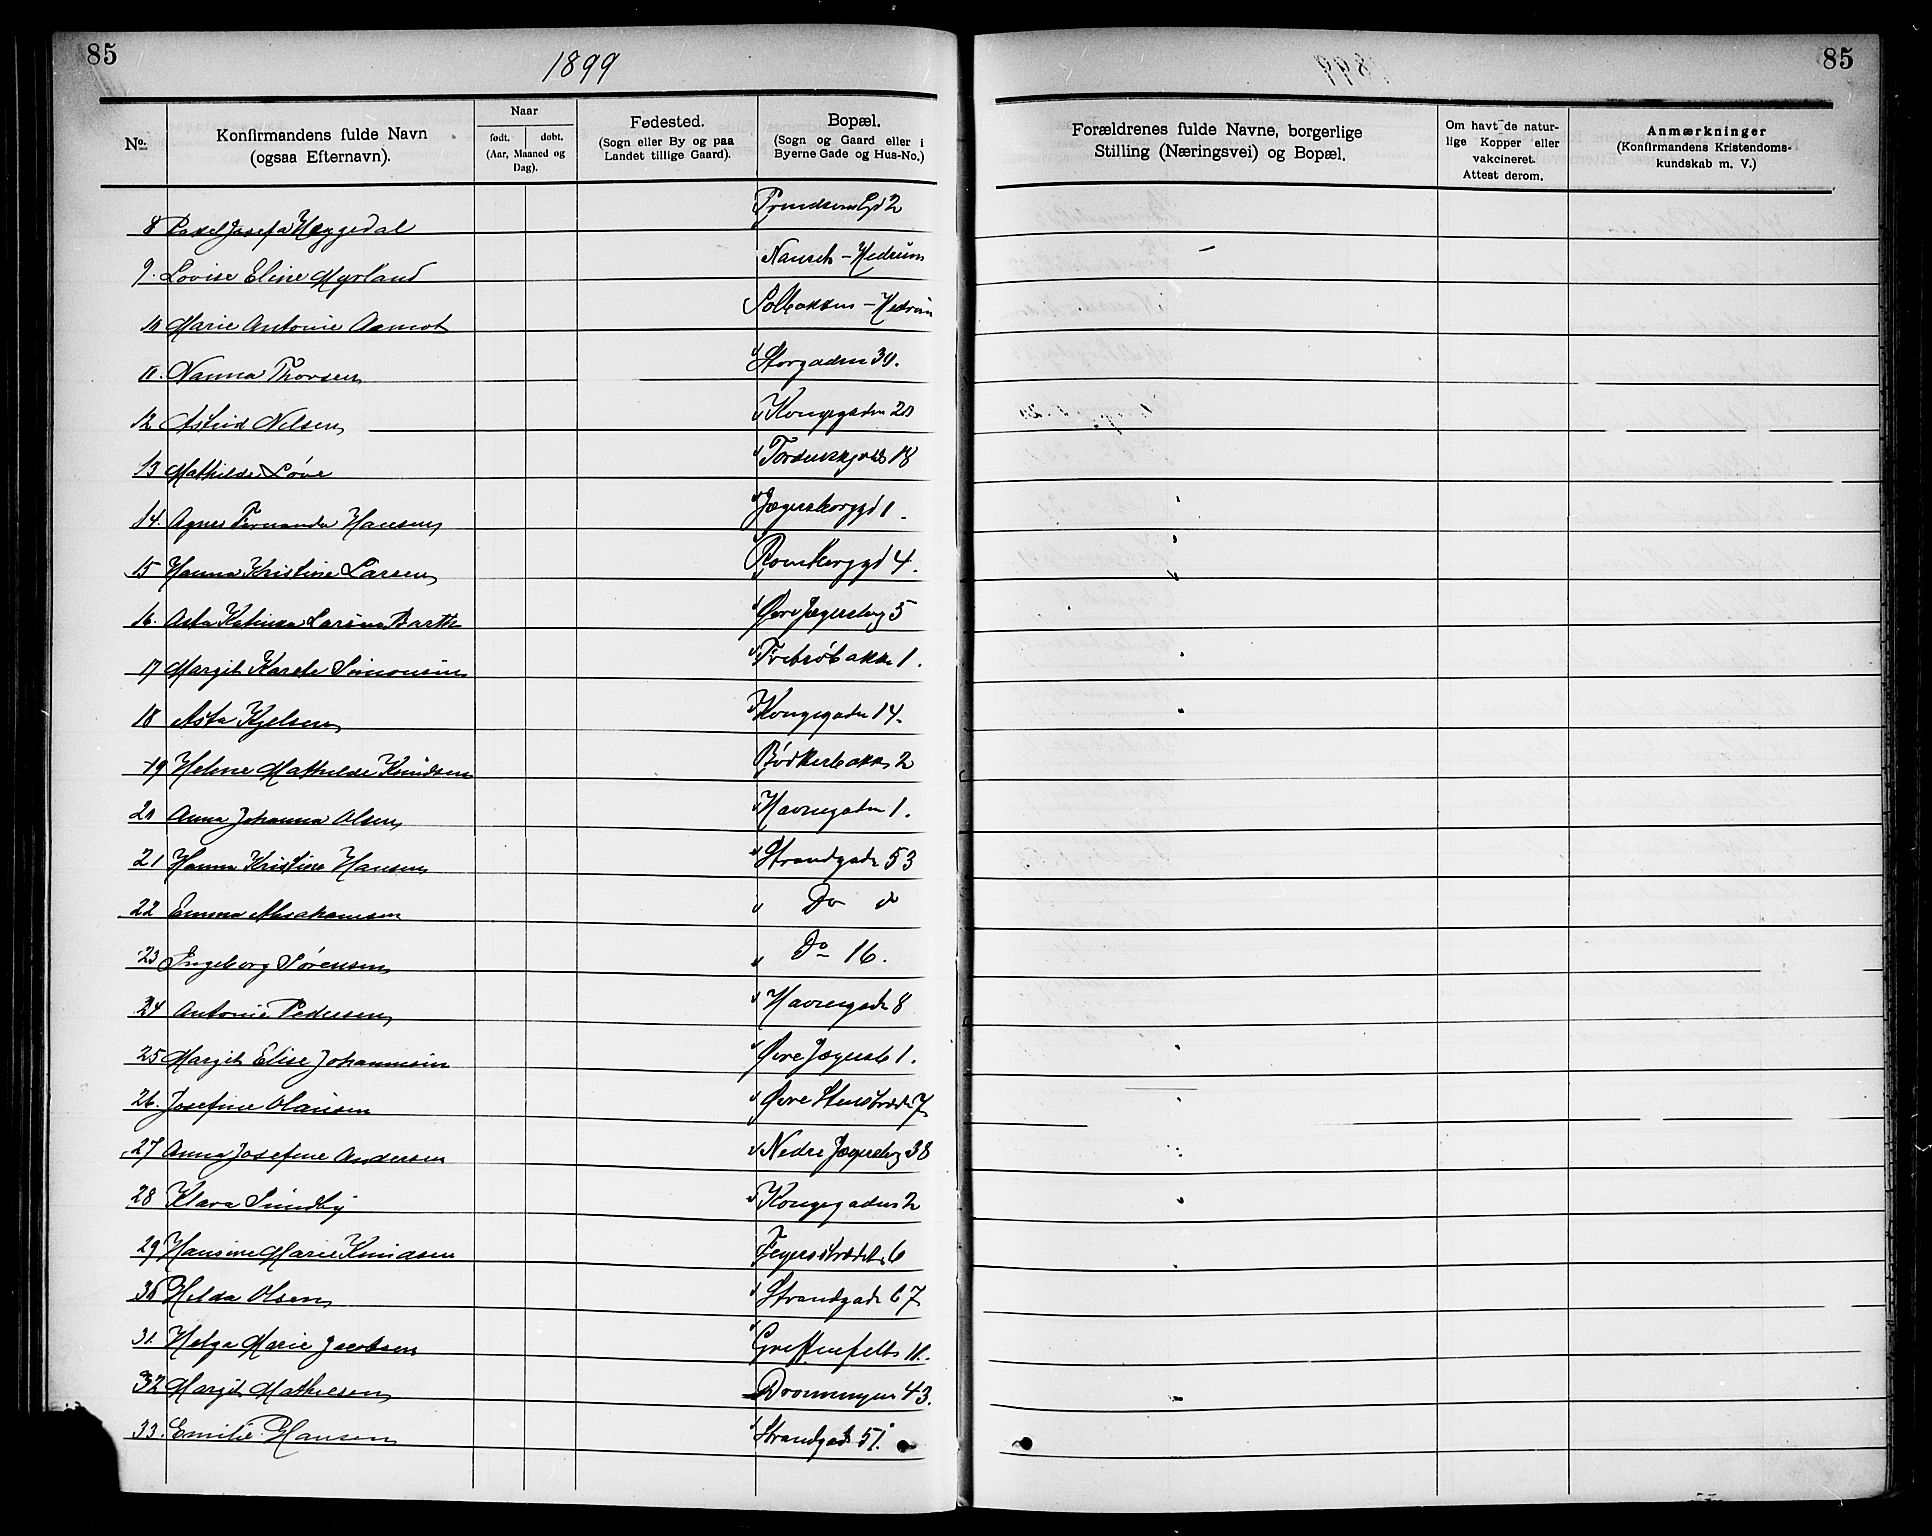 85
1899
No.
Konfirmandens fulde Navn
(ogsaa Efternavn).
Naar
født. døbt.
(Aar, Maaned og
Dag).
Fødested.
(Sogn eller By og paa
Landet tillige Gaard).
Bopæl.
(Sogn og Gaard eller i
Byerne Gade og Hus-No.)
8 Josefa Heggedal 2
9. Lovise Eline Myrland Nanset - Hedrum
10 Marie Antonie Aamot Solbakken - Hedrum
11. Nanna Thorsen Storgaden 39.
12 Astrid Nelsen Kongegaden 20
13 Mathilde Løve 18
14. Agnes Fernanda Hansen Jegersborggd 1
15 Hanna Kristine Larsen Rombergyd 4.
16. Asta Katinka Larsine Barth Øvre Jegersborg 5
17 Margit Karete Simonsen Trebrøbakke 1.
18 Asta Kjelsen Kongegaden 14.
19 Helene Mathilde Knudsen Bødkerbakke 2
20 Anna Johanna Olsen Havnegaden 1.
21 Hanna Kristine Hansen Strandgade 53
22 Emma Abrahamsen Do do
23 Ingeborg Sørensen Do 16.
24 Antonie Pedersen Havnegade 8
25 Margit Elise Johannesen Øvre Jegersb 1.
26. Josefine Olausen Øvre Stenstræde 7
27 Anna Josefine Andersen Nedre Jegersbg 38
28 Klara Sundby Kongegaden 2
29 Hansine Marie Knudsen Feyerstrædet 6
30 Helda Olsen Strandgade 67
31. Helga Marie Jacobsen Greffenfelts 11.
32 Margit Mathiesen Dronningen 43.
33. Emilie Hansen Strandgade 51.
85
Forældrenes fulde Navne, borgerlige
Stilling (Næringsvei) og Bopæl.
Om havt de natur-
lige Kopper eller
vakcineret.
Attest derom.
Anmærkninger
(Konfirmandens Kristendoms-
kundskab m. V.)